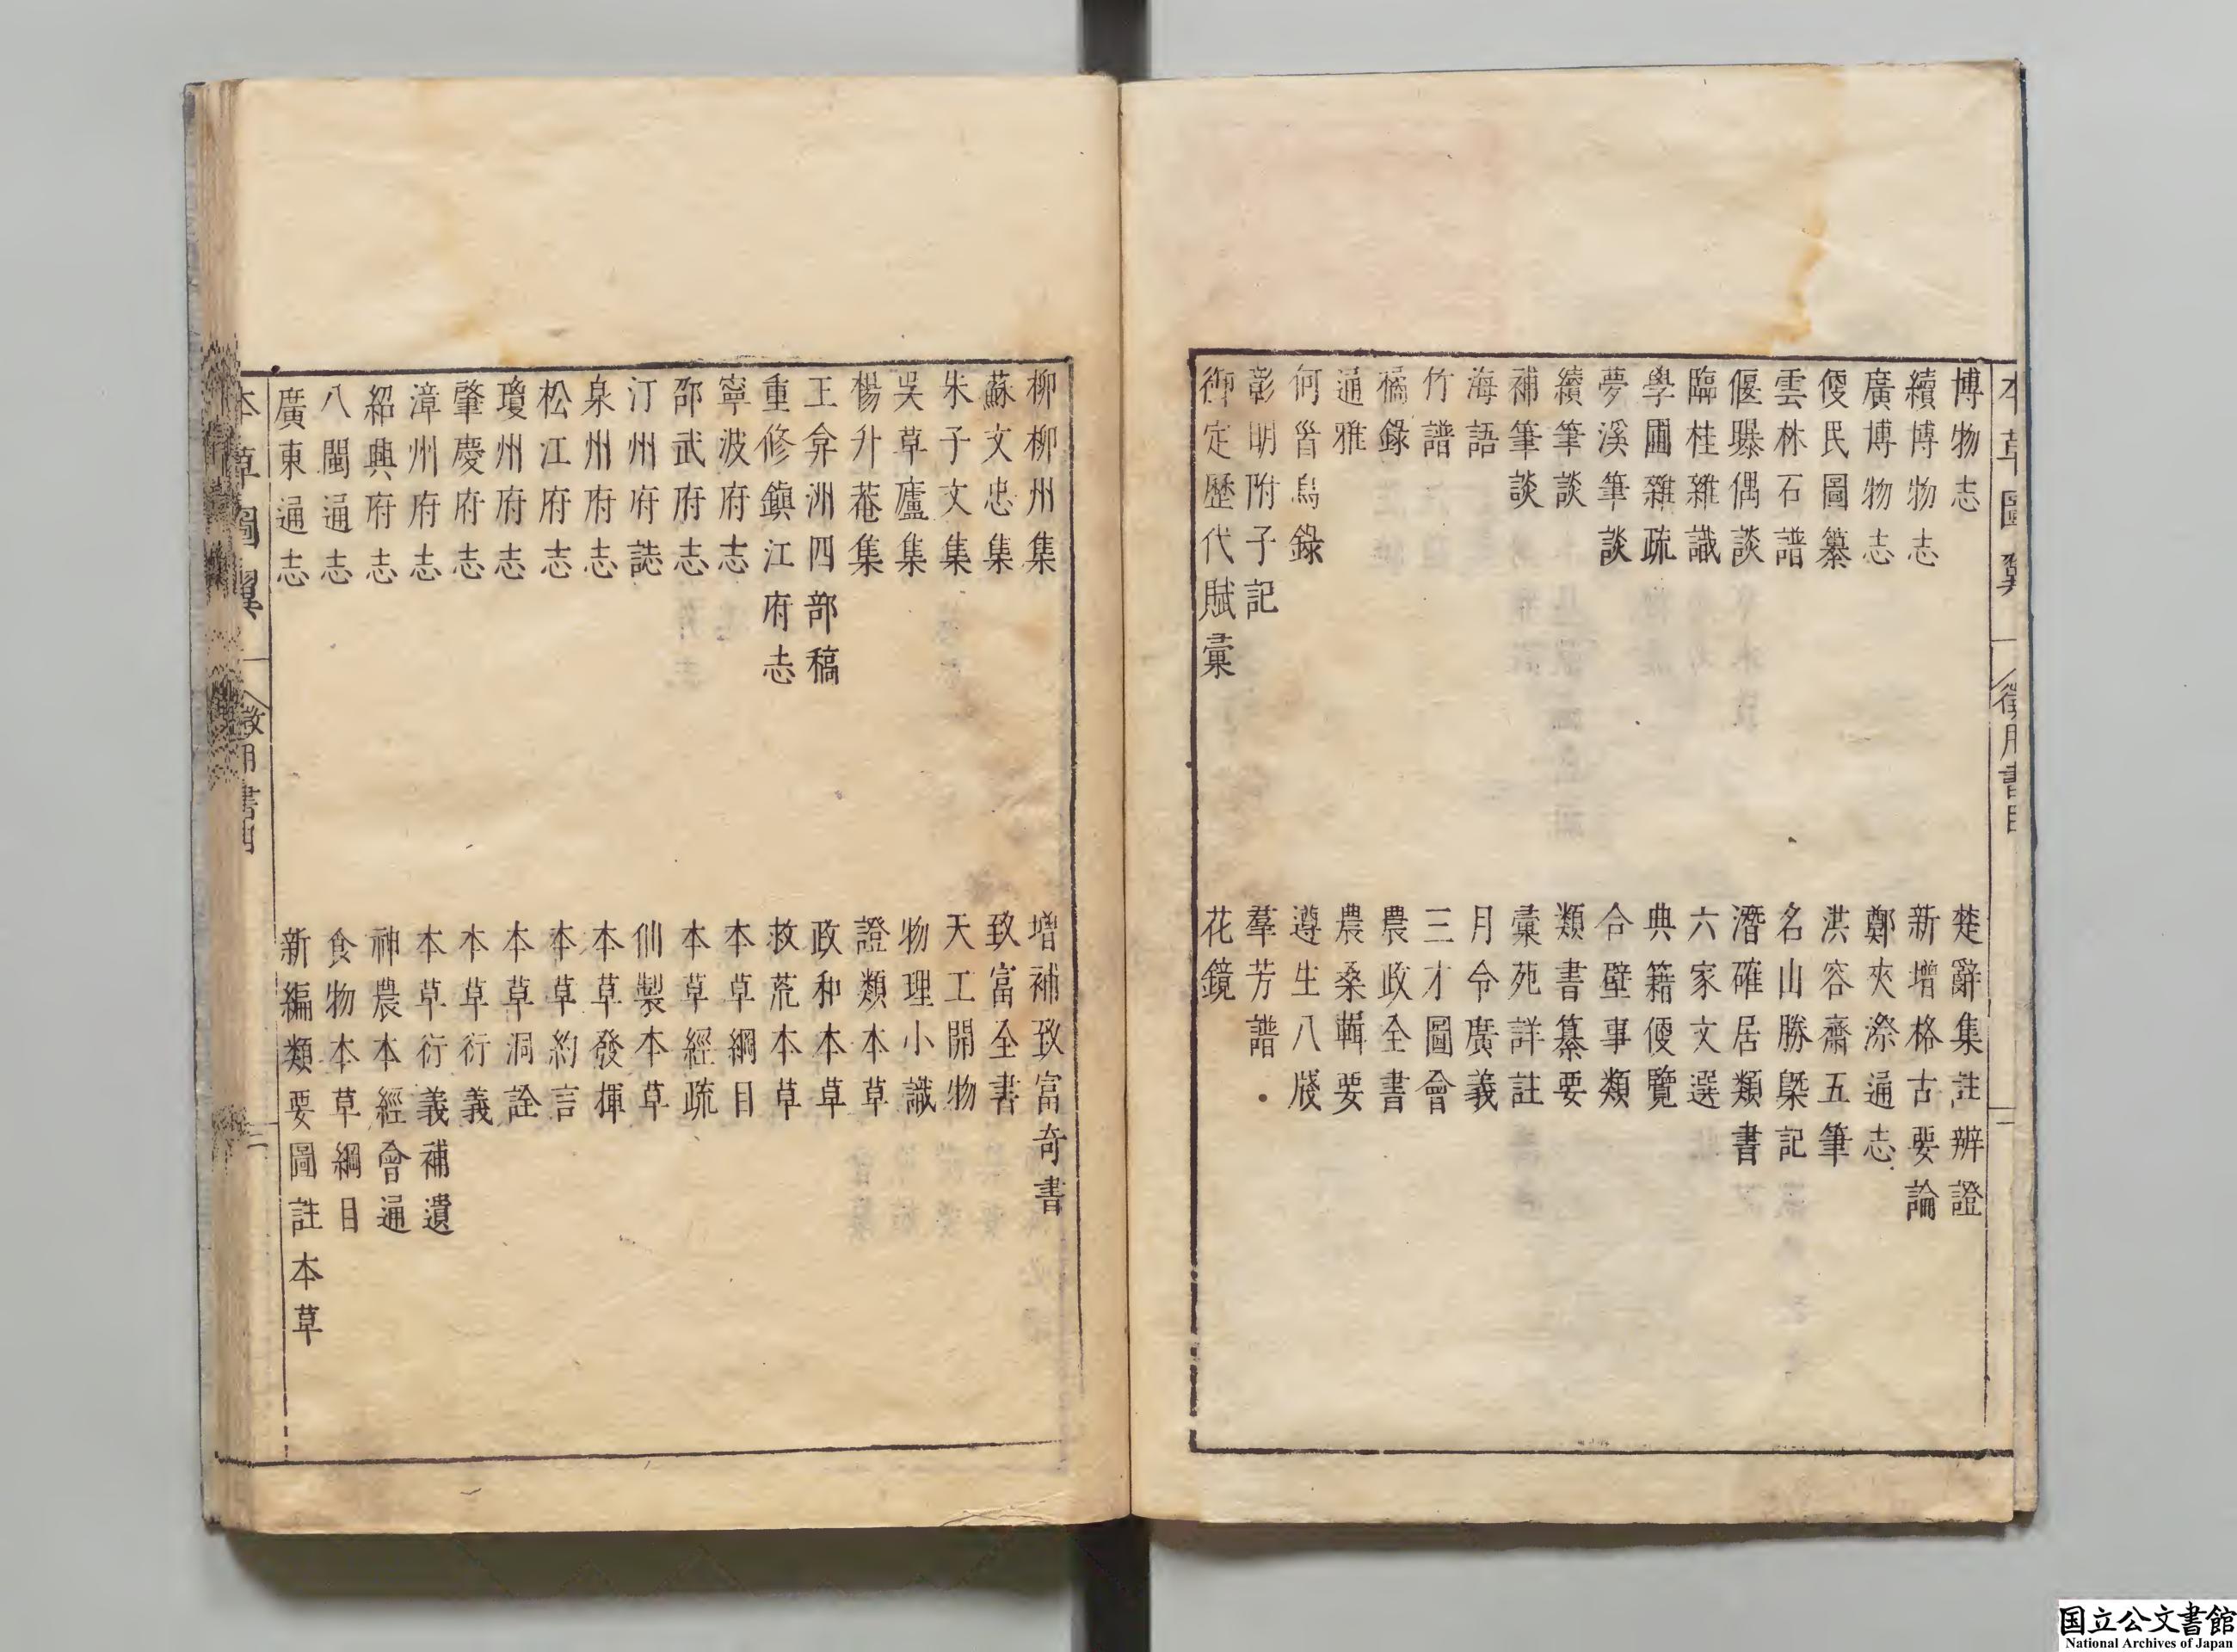 本草圖翼
徵用書目
二
博物志
楚辭集註辨證
續博物志
新增格古要論
廣博物志
鄭夾漈通志
便民圖纂
洪容齋五筆
雲林石譜
名山勝槩記
偃曝偶談
潛確居類書
臨桂雜識
六家文選
學圃雜疏
典籍便覽
夢溪筆談
合璧事類
續筆談
類書纂要
補筆談
彙苑詳註
海語
月令廣義
竹譜
三才圖會
橘錄
農政全書
通雅
農桑輯要
何首烏錄
遵生八牋
彰明附子記
羣芳譜
御定歷代賦彙
花鏡
柳柳州集
增補致富奇書
蘇文忠集
致富全書
朱子文集
天工開物
吳草廬集
物理小識
楊升菴集
證類本草
王弇洲四部稿
政和本草
重修鎮江府志
救荒本草
寧波府志
本草綱目
邵武府志
本草經疏
汀州府誌
仙製本草
泉州府志
本草發揮
松江府志
本草約言
瓊州府志
本草洞詮
肇慶府志
本草衍義
漳州府志
本草衍義補遺
紹興府志
神農本經會通
八閩通志
食物本草綱目
廣東通志
新編類要圖註本草
本草圖翼
徵用書目
三
国立公文書館
National Archives of Japan